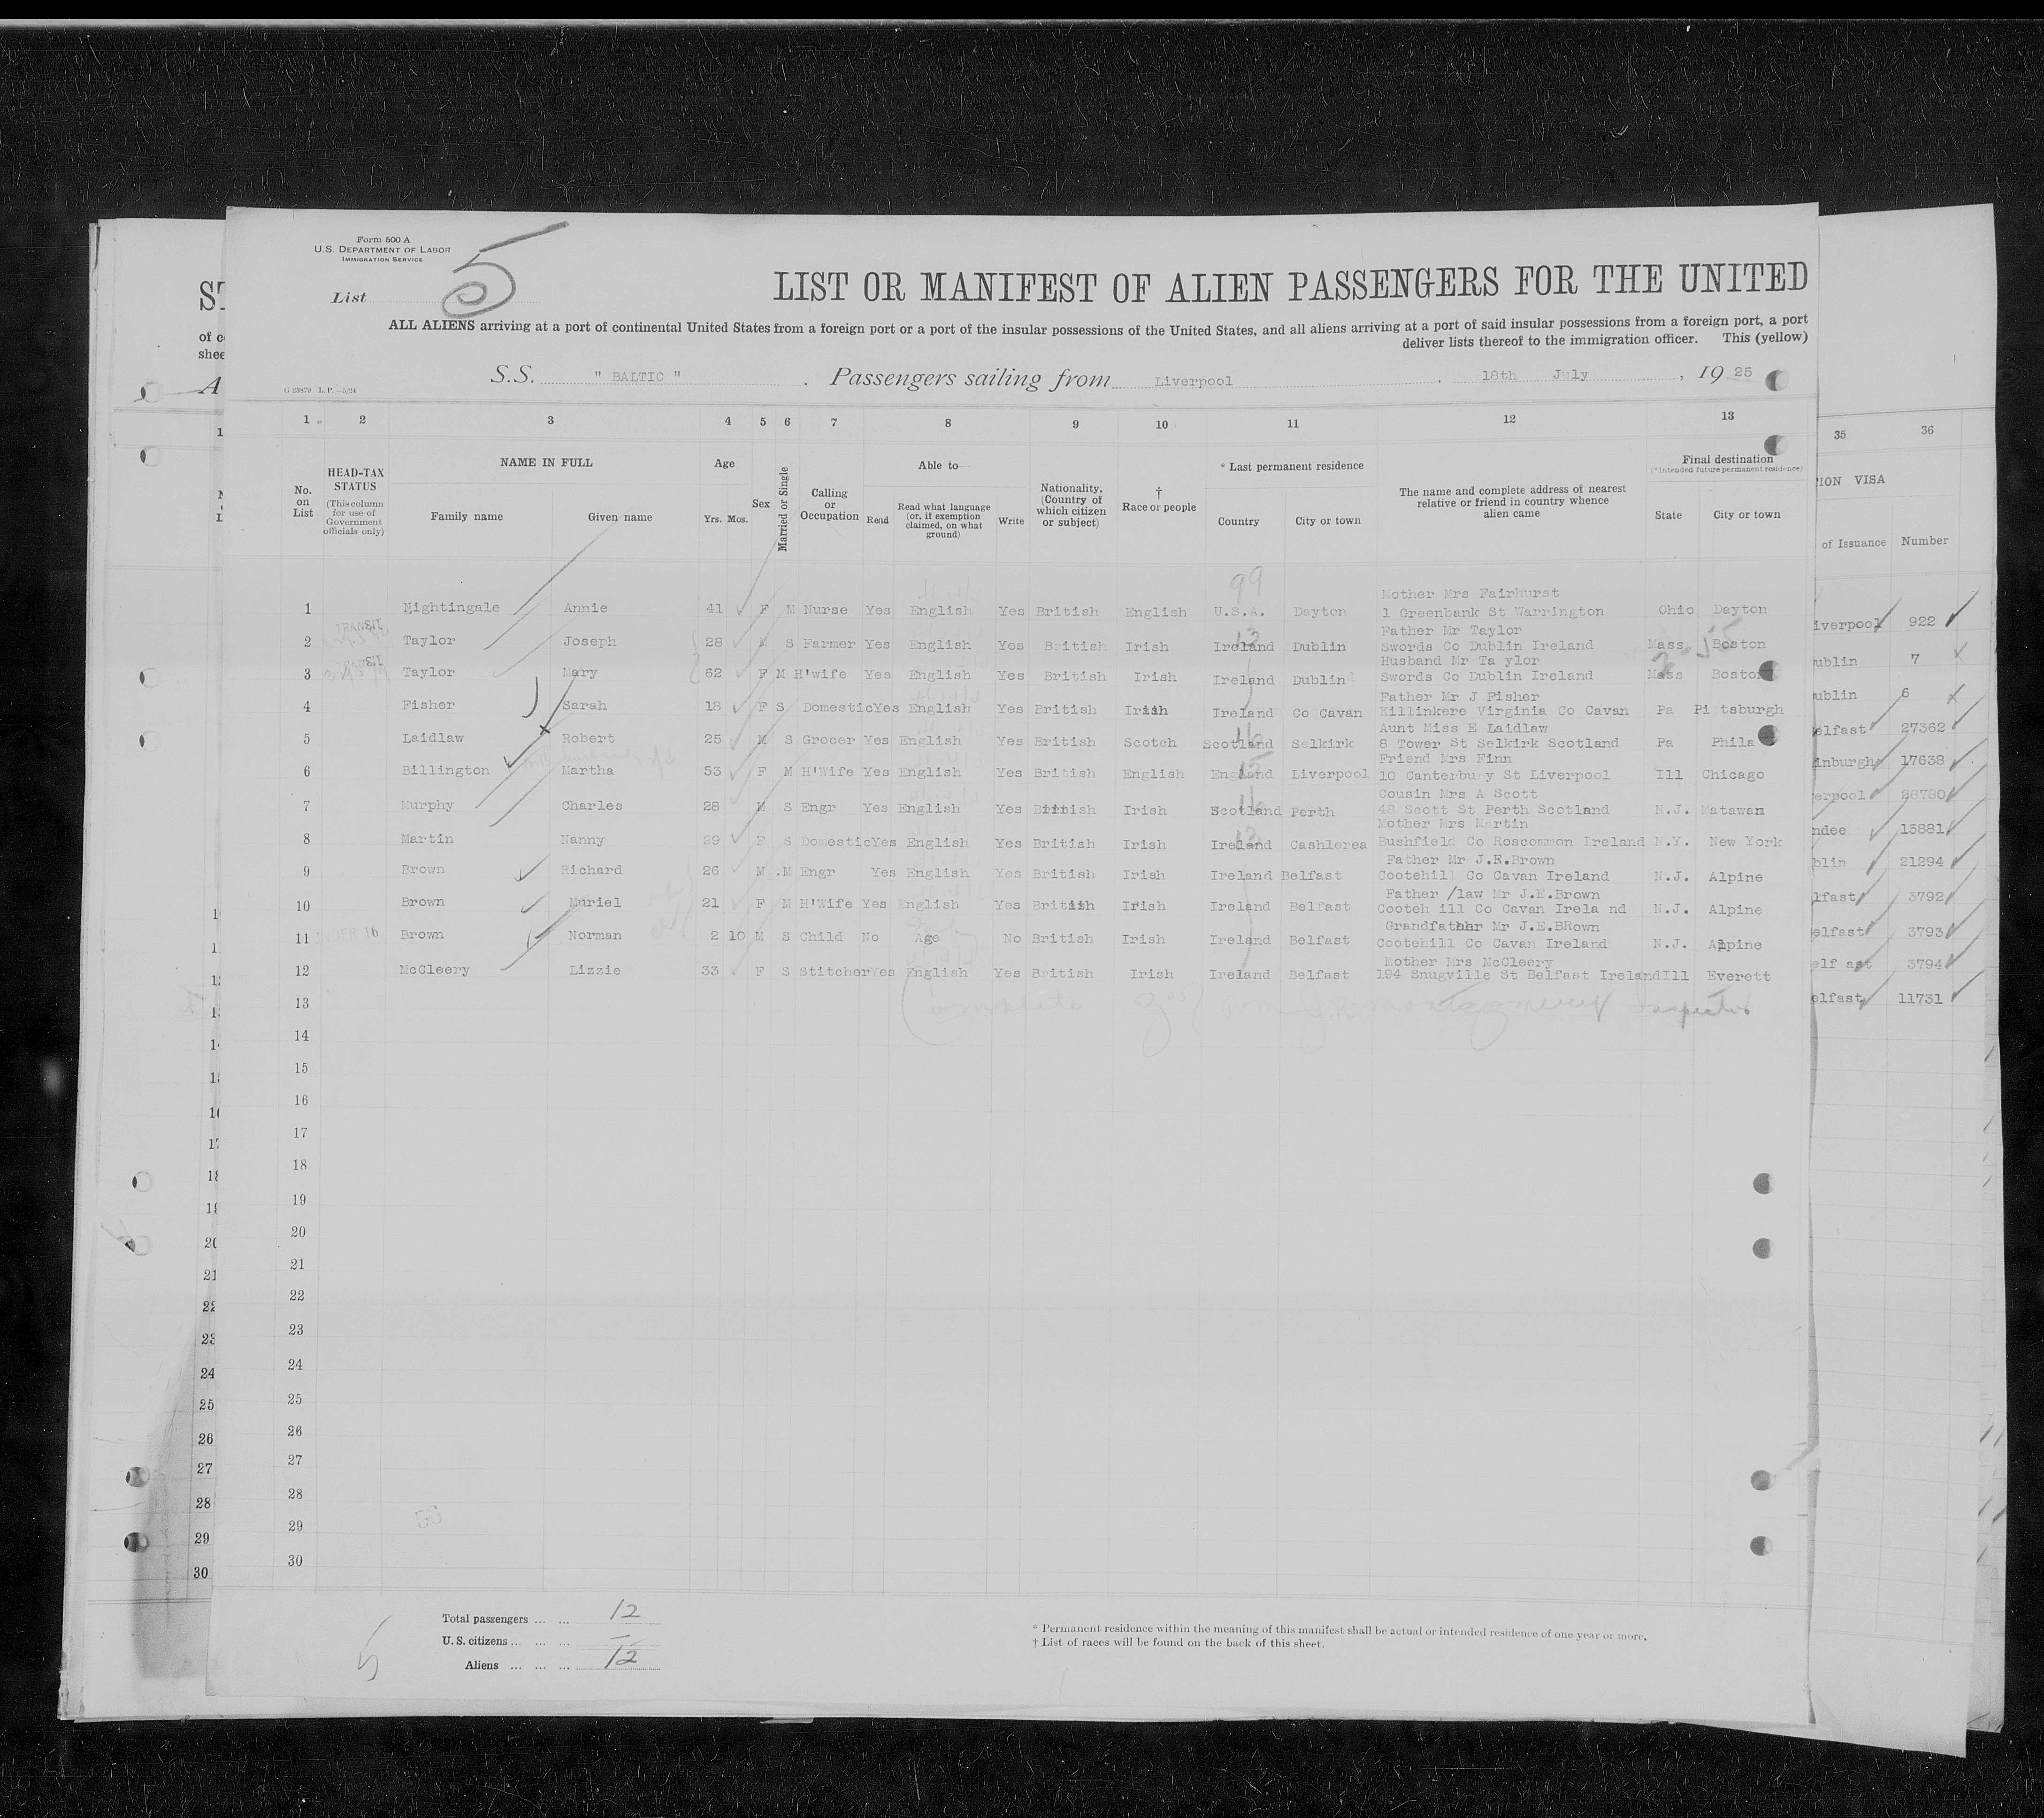 Form 500 A
U.S. DEPARTMENT OF LABOR
IMMIGRATION SERVICE
List 5
LIST OR MANIFEST OF ALIEN PASSENGERS FOR THE UNITED
ALL ALIENS arriving at a port of continental United States from a foreign port or a port of the insular possessions of the United States, and all aliens arriving at a port of said insular possessions from a foreign port, a port
deliver lists thereof to the immigration officer. This (yellow)
G 23879 L.P.—5/24
S.S. " BALTIC " . Passengers sailing from Liverpool , 18th July , 19 25
1 2 3 4 5 6 7 8 9 10 11 12 13
35 36
No. on List
HEAD-TAX STATUS (This column for use of Government officials only)
NAME IN FULL
Family name Given name
Age
Yrs. Mos.
Sex
Married or Single
Calling or Occupation
Able to
Read Read what language (or, if exemption claimed, on what ground) Write
Nationality, (Country of which citizen or subject)
† Race or people
* Last permanent residence
Country City or town
The name and complete address of nearest relative or friend in country whence alien came
Final destination
(*Intended future permanent residence)
State City or town
ION VISA
of Issuance Number
99
Mother Mrs Fairhurst
1 Nightingale Annie 41 F M Nurse Yes English Yes British English U.S.A. Dayton 1 Greenbank St Warrington Ohio Dayton iverpool 922
Father Mr Taylor
2 Taylor Joseph 28 M S Farmer Yes English Yes British Irish Ireland Dublin Swords Co Dublin Ireland Mass Boston ublin 7
Husband Mr Ta ylor
3 Taylor Mary 62 F M H'wife Yes English Yes British Irish Ireland Dublin Swords Co Dublin Ireland Mass Boston ublin 6
Father Mr J Fisher
4 Fisher Sarah 18 F S Domestic Yes English Yes British Irish Ireland Co Cavan Killinkere Virginia Co Cavan Pa Pittsburgh elfast 27362
Aunt Miss E Laidlaw
5 Laidlaw Robert 25 M S Grocer Yes English Yes British Scotch Scotland Selkirk 8 Tower St Selkirk Scotland Pa Phila inburgh 17638
Friend Mrs Finn
6 Billington Martha 53 F M H'Wife Yes English Yes British English England Liverpool 10 Canterbury St Liverpool Ill Chicago erpool 28780
Cousin Mrs A Scott
7 Murphy Charles 28 M S Engr Yes English Yes British Irish Scotland Perth 48 Scott St Perth Scotland N.J. Matawan ndee 15881
Mother Mrs Martin
8 Martin Nanny 29 F S Domestic Yes English Yes British Irish Ireland Cashlerea Bushfield Co Roscommon Ireland N.Y. New York blin 21294
Father Mr J.E.Brown
9 Brown Richard 26 M .M Engr Yes English Yes British Irish Ireland Belfast Cootehill Co Cavan Ireland N.J. Alpine lfast 3792
Father /law Mr J.E.Brown
10 Brown Muriel 21 F M H'Wife Yes English Yes British Irish Ireland Belfast Cooteh ill Co Cavan Irela nd N.J. Alpine elfast 3793
Grandfather Mr J.E.BRown
11 Brown Norman 2 10 M S Child No Age No British Irish Ireland Belfast Cootehill Co Cavan Ireland N.J. Alpine elf ast 3794
Mother Mrs McCleery
12 McCleery Lizzie 33 F S Stitcher Yes English Yes British Irish Ireland Belfast 194 Snugville St Belfast Ireland Ill Everett elfast 11731
13 Complete Inspector
14
15
16
17
18
19
20
21
22
23
24
25
26
27
28
29
30
Total passengers ... ... 12
U. S. citizens ... ... ... —
Aliens ... ... ... 12
5
* Permanent residence within the meaning of this manifest shall be actual or intended residence of one year or more.
† List of races will be found on the back of this sheet.